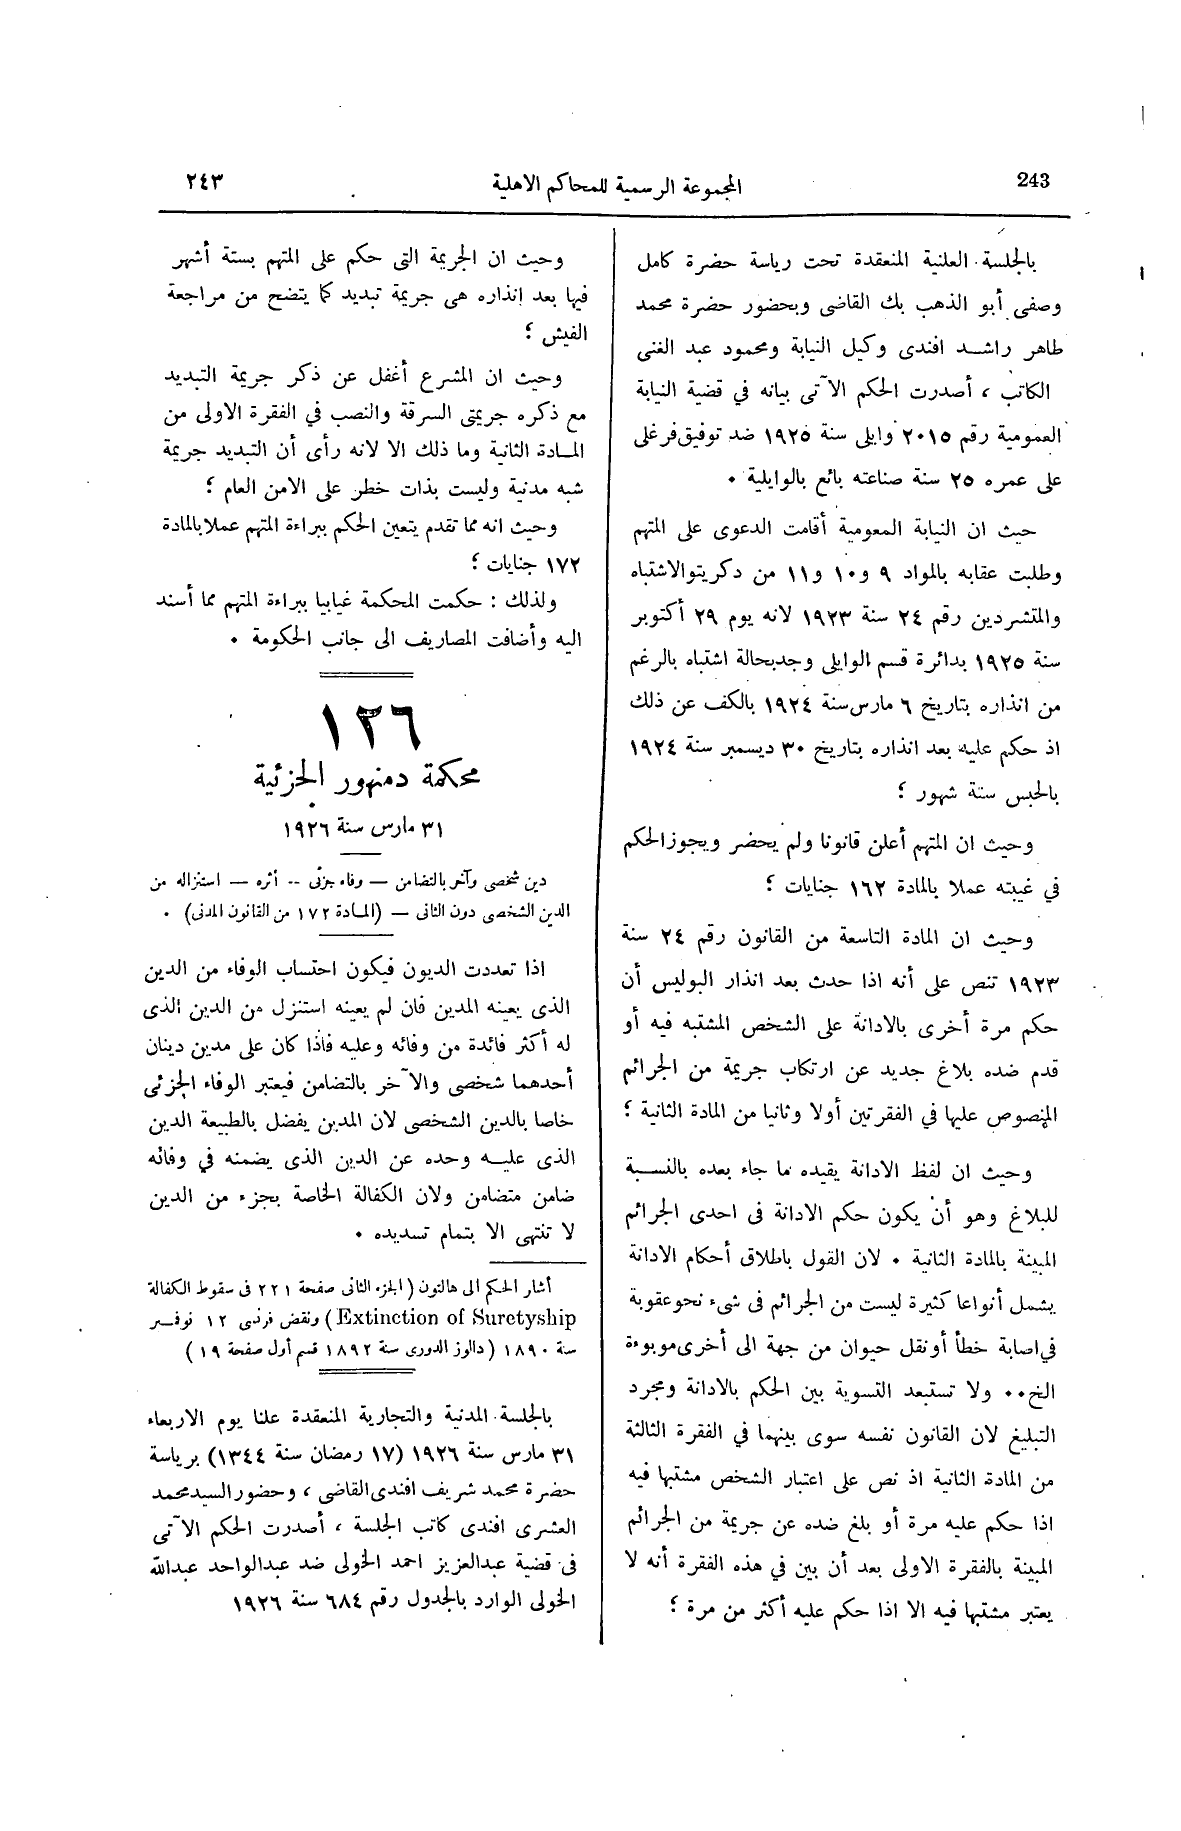 243 المجموعة الرسمية للمحاكم الاهلية ٢٤٣
بالجلسة العلنية المنعقدة تحت رياسة حضرة كامل
وصفى أبو الذهب بك القاضى وبحضور حضرة محمد
طاهر راشد افندى وكيل النيابة ومحمود عبد الغنى
الكاتب ، أصدرت الحكم الآتى بيانه في قضية النيابة
العمومية رقم ٢٠١٥ وايلى سنة ١٩٢٥ ضد توفيق فرغلى
على عمره ٢٥ سنة صناعته بائع بالوايلية ٠
حيث ان النيابة المعومية أقامت الدعوى على المتهم
وطلبت عقابه بالمواد ٩ و١٠ و١١ من دكريتو الاشتباه
والمتشردين رقم ٢٤ سنة ١٩٢٣ لانه يوم ٢٩ أكتوبر
سنة ١٩٢٥ بدائرة قسم الوايلى وجد بحالة اشتباه بالرغم
من انذاره بتاريخ ٦ مارس سنة ١٩٢٤ بالكف عن ذلك
اذ حكم عليه بعد انذاره بتاريخ ٣٠ ديسمبر سنة ١٩٢٤
بالحبس ستة شهور ؛
وحيث ان المتهم أعلن قانونا ولم يحضر ويجوز الحكم
في غيبته عملا بالمادة ١٦٢ جنايات ؛
وحيث ان المادة التاسعة من القانون رقم ٢٤ سنة
١٩٢٣ تنص على أنه اذا حدث بعد انذار البوليس أن
حكم مرة أخرى بالادانة على الشخص المشتبه فيه أو
قدم ضده بلاغ جديد عن ارتكاب جريمة من الجرائم
المنصوص عليها في الفقرتين أولا وثانيا من المادة الثانية ؛
وحيث ان لفظ الادانة يقيده ما جاء بعده بالنسبة
للبلاغ وهو أن يكون حكم الادانة فى احدى الجرائم
المبينة بالمادة الثانية ٠ لان القول باطلاق أحكام الادانة
يشمل أنواعا كثيرة ليست من الجرائم فى شىء نحو عقوبة
في اصابة خطأ أو نقل حيوان من جهة الى أخرى موبوءة
الخ ٠٠ ولا تستبعد التسوية بين الحكم بالادانة ومجرد
التبليغ لان القانون نفسه سوى بينهما في الفقرة الثالثة
من المادة الثانية اذ نص على اعتبار الشخص مشتبها فيه
اذا حكم عليه مرة أو بلغ ضده عن جريمة من الجرائم
المبينة بالفقرة الاولى بعد أن بين في هذه الفقرة أنه لا
يعتبر مشتبها فيه الا اذا حكم عليه أكثر من مرة ؛
وحيث ان الجريمة التى حكم على المتهم بستة أشهر
فيها بعد إنذاره هى جريمة تبديد كما يتضح من مراجعة
الفيش ؛
وحيث ان المشرع أغفل عن ذكر جريمة التبديد
مع ذكره جريمتى السرقة والنصب في الفقرة الاولى من
المادة الثانية وما ذلك الا لانه رأى أن التبديد جريمة
شبه مدنية وليست بذات خطر على الامن العام ؛
وحيث انه مما تقدم يتعين الحكم ببراءة المتهم عملا بالمادة
١٧٢ جنايات ؛
ولذلك : حكمت المحكمة غيابيا ببراءة المتهم مما أسند
اليه وأضافت المصاريف الى جانب الحكومة ٠
١٢٦
محكمة دمنهور الجزئية
٣١ مارس سنة ١٩٢٦
دين شخصى وآخر بالتضامن — وفاء جزئى -- أثره — استنزاله من
الدين الشخصى دون الثانى — (المادة ١٧٢ من القانون المدنى) ٠
اذا تعددت الديون فيكون احتساب الوفاء من الدين
الذى يعينه المدين فان لم يعينه استنزل من الدين الذى
له أكثر فائدة من وفائه وعليه فاذا كان على مدين دينان
أحدهما شخصى والآخر بالتضامن فيعتبر الوفاء الجزئى
خاصا بالدين الشخصى لان المدين يفضل بالطبيعة الدين
الذى عليه وحده عن الدين الذى يضمنه في وفائه
ضامن متضامن ولان الكفالة الخاصة بجزء من الدين
لا تنتهى الا بتمام تسديده ٠
أشار الحكم الى هالتون ( الجزء الثانى صفحة ٢٢١ فى سقوط الكفالة
Extinction of Suretyship) ونقض فرنسى ١٢ نوفمبر
سنة ١٨٩٠ (دالوز الدورى سنة ١٨٩٢ قسم أول صفحة ١٩ )
بالجلسة المدنية والتجارية المنعقدة علنا يوم الاربعاء
٣١ مارس سنة ١٩٢٦ (١٧ رمضان سنة ١٣٤٤) برياسة
حضرة محمد شريف افندى القاضى ، وحضور السيد محمد
العشرى افندى كاتب الجلسة ، أصدرت الحكم الآتى
فى قضية عبدالعزيز احمد الخولى ضد عبدالواحد عبدالله
الخولى الوارد بالجدول رقم ٦٨٤ سنة ١٩٢٦